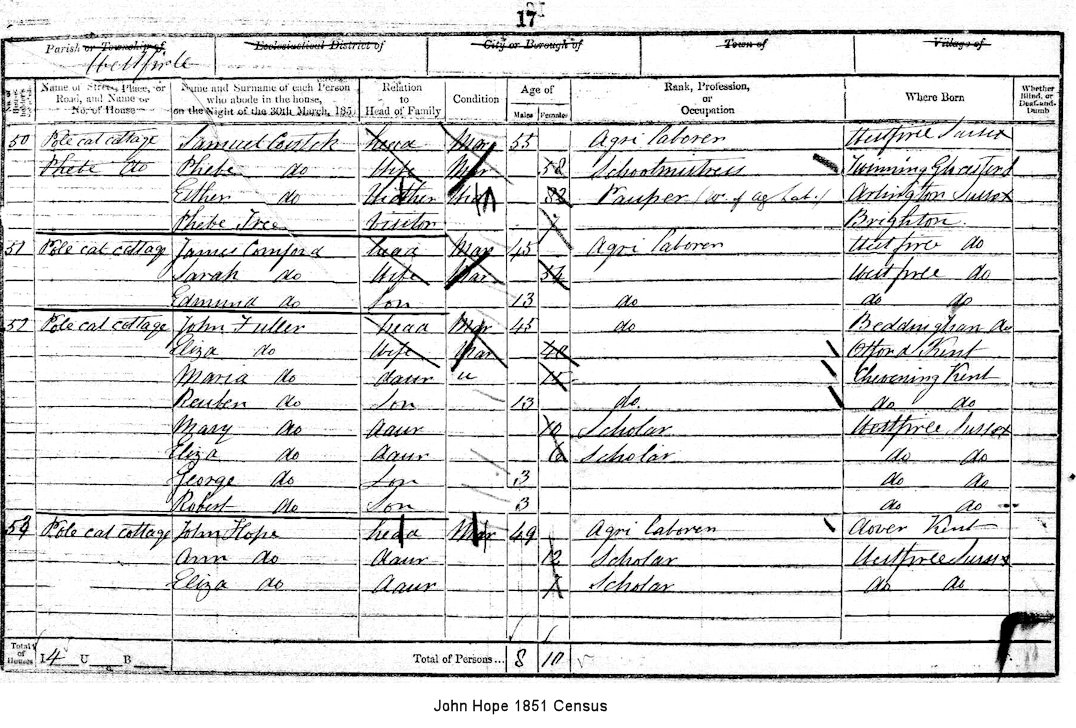 17
Parish or Township of Ecclesiastical District of City or Borough of Town of Village of
Westfirle
Name of Street, Place, or Road, and Name or No. of House Name and Surname of each Person who abode in the house, on the Night of the 30th March, 1851 Relation to Head of Family Condition Age of Males Females Rank, Profession, or Occupation Where Born Whether Blind, or Deaf-and-Dumb
50 Pole cat cottage Samuel head Mar 55 Agri Laborer Westfirle Sussex
Phebe do Phebe do Wife Mar 58 Schoolmistress Twinning
Esther do Mother 82 Pauper (W. of ag. Lab.) Arlington Sussex
Phebe Tree Visitor Brighton
51 Pole cat cottage James Comford head Mar 45 Agri Laborer Westfirle do
Sarah do Wife Mar 54 Westfirle do
Edmund do Son 13 do do do
52 Pole cat cottage John Fuller head Mar 45 do Beddingham do
Eliza do Wife Mar 40 Otford Kent
Maria do daur u 15 Chevening Kent
Reuben do Son 13 do. do do
Mary do daur 10 Scholar Westfirle Sussex
Eliza do daur 6 Scholar do do
George do Son 3 do do
Robert do Son 3 do do
Pole cat cottage John Hope head Mar 49 Agri Laborer Dover Kent
Ann do daur 12 Scholar Westfirle Sussex
Eliza do daur Scholar do do
Total of Houses I 4 U B Total of Persons... 8 10
John Hope 1851 Census